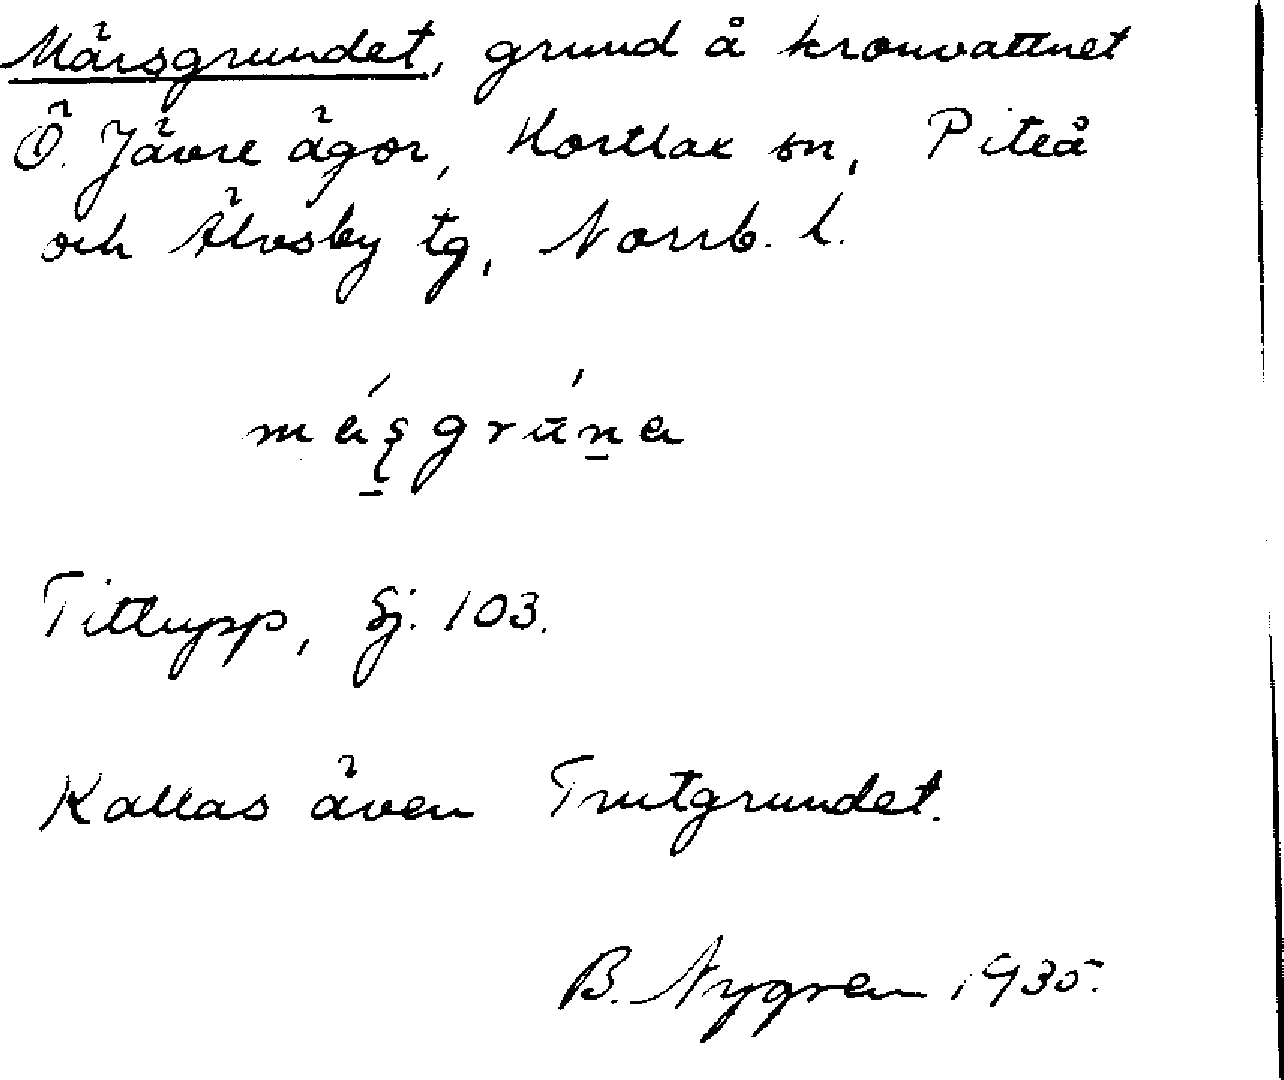 Märsgrundet, grund å kronvattnet
Ö. Jävre ägor, Hortlax sn, Piteå
och Älvsby tg, Norrb. l.
Tittupp, Sj. 103.
Kallas även Trutgrundet.
B. Nygren 1935.